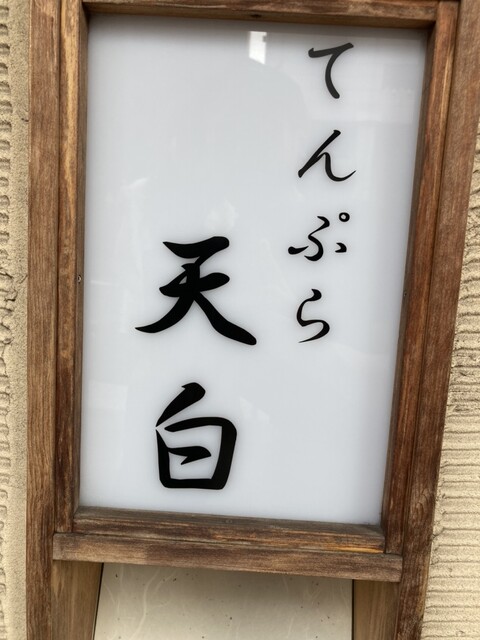 てんぷら
天白